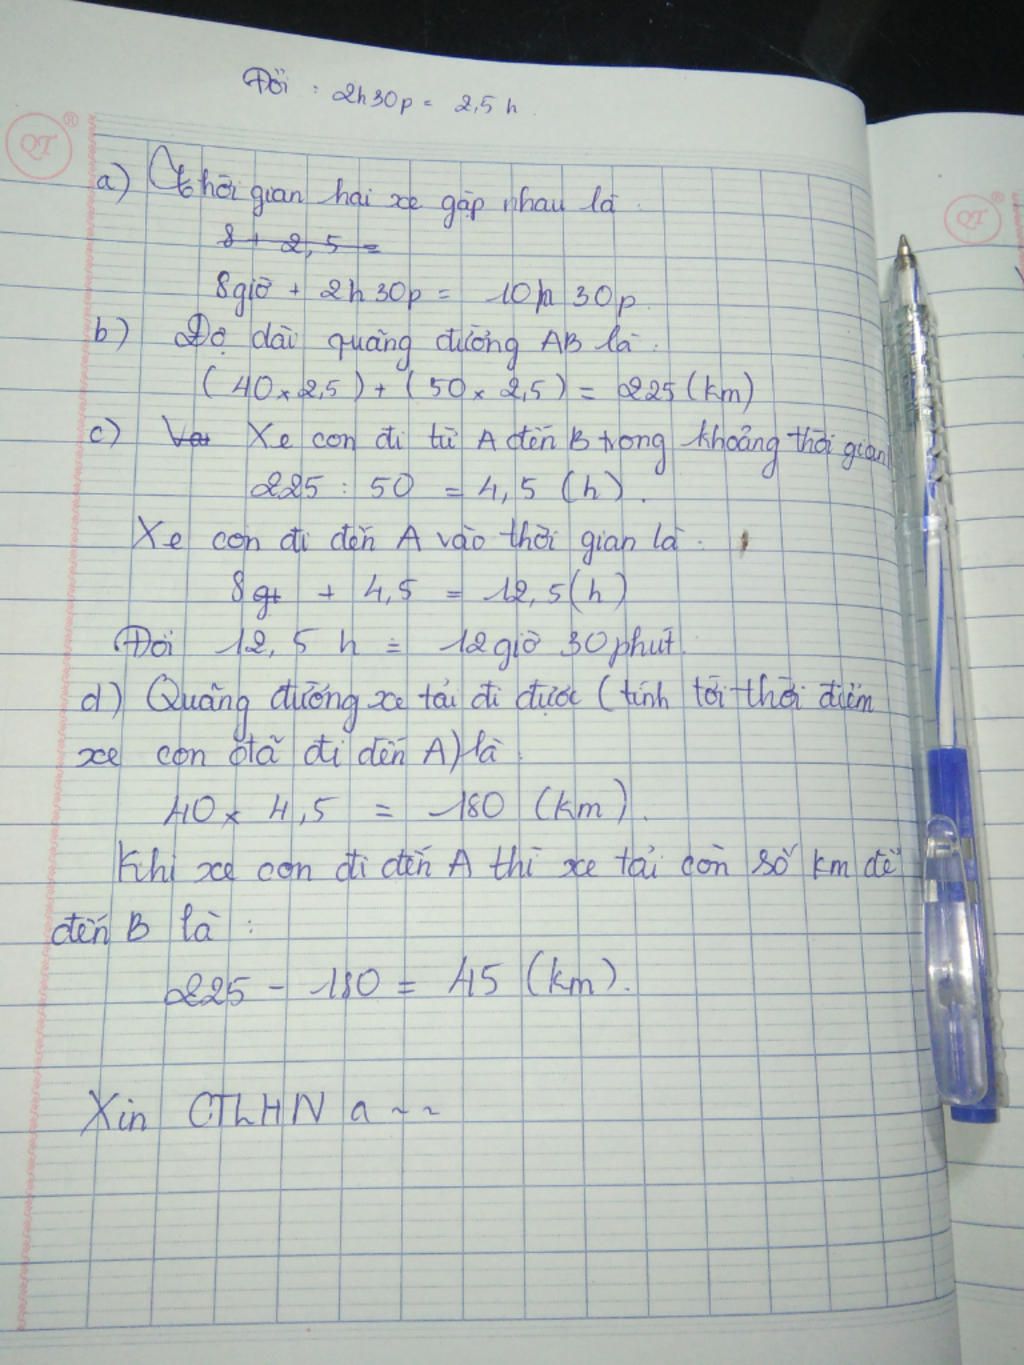 Đổi : 2h30p = 2,5 h
QT ®
a) Thời gian hai xe gặp nhau là :
8 + 2,5 =
8giờ + 2h30p = 10h 30p
b) Độ dài quãng đường AB là :
(40 x 2,5) + (50 x 2,5) = 225 (km)
c) Xe con đi từ A đến B trong khoảng thời gian
225 : 50 = 4,5 (h).
Xe con đi đến A vào thời gian là :
8 + 4,5 = 12,5 (h)
Đổi 12,5 h = 12 giờ 30 phút.
d) Quãng đường xe tải đi được (tính tới thời điểm
xe con đã đi đến A) là
40 x 4,5 = 180 (km).
Khi xe con đi đến A thì xe tải còn số km để
đến B là :
225 - 180 = 45 (km).
Xin CTLHN ạ ~ ~
QT ®